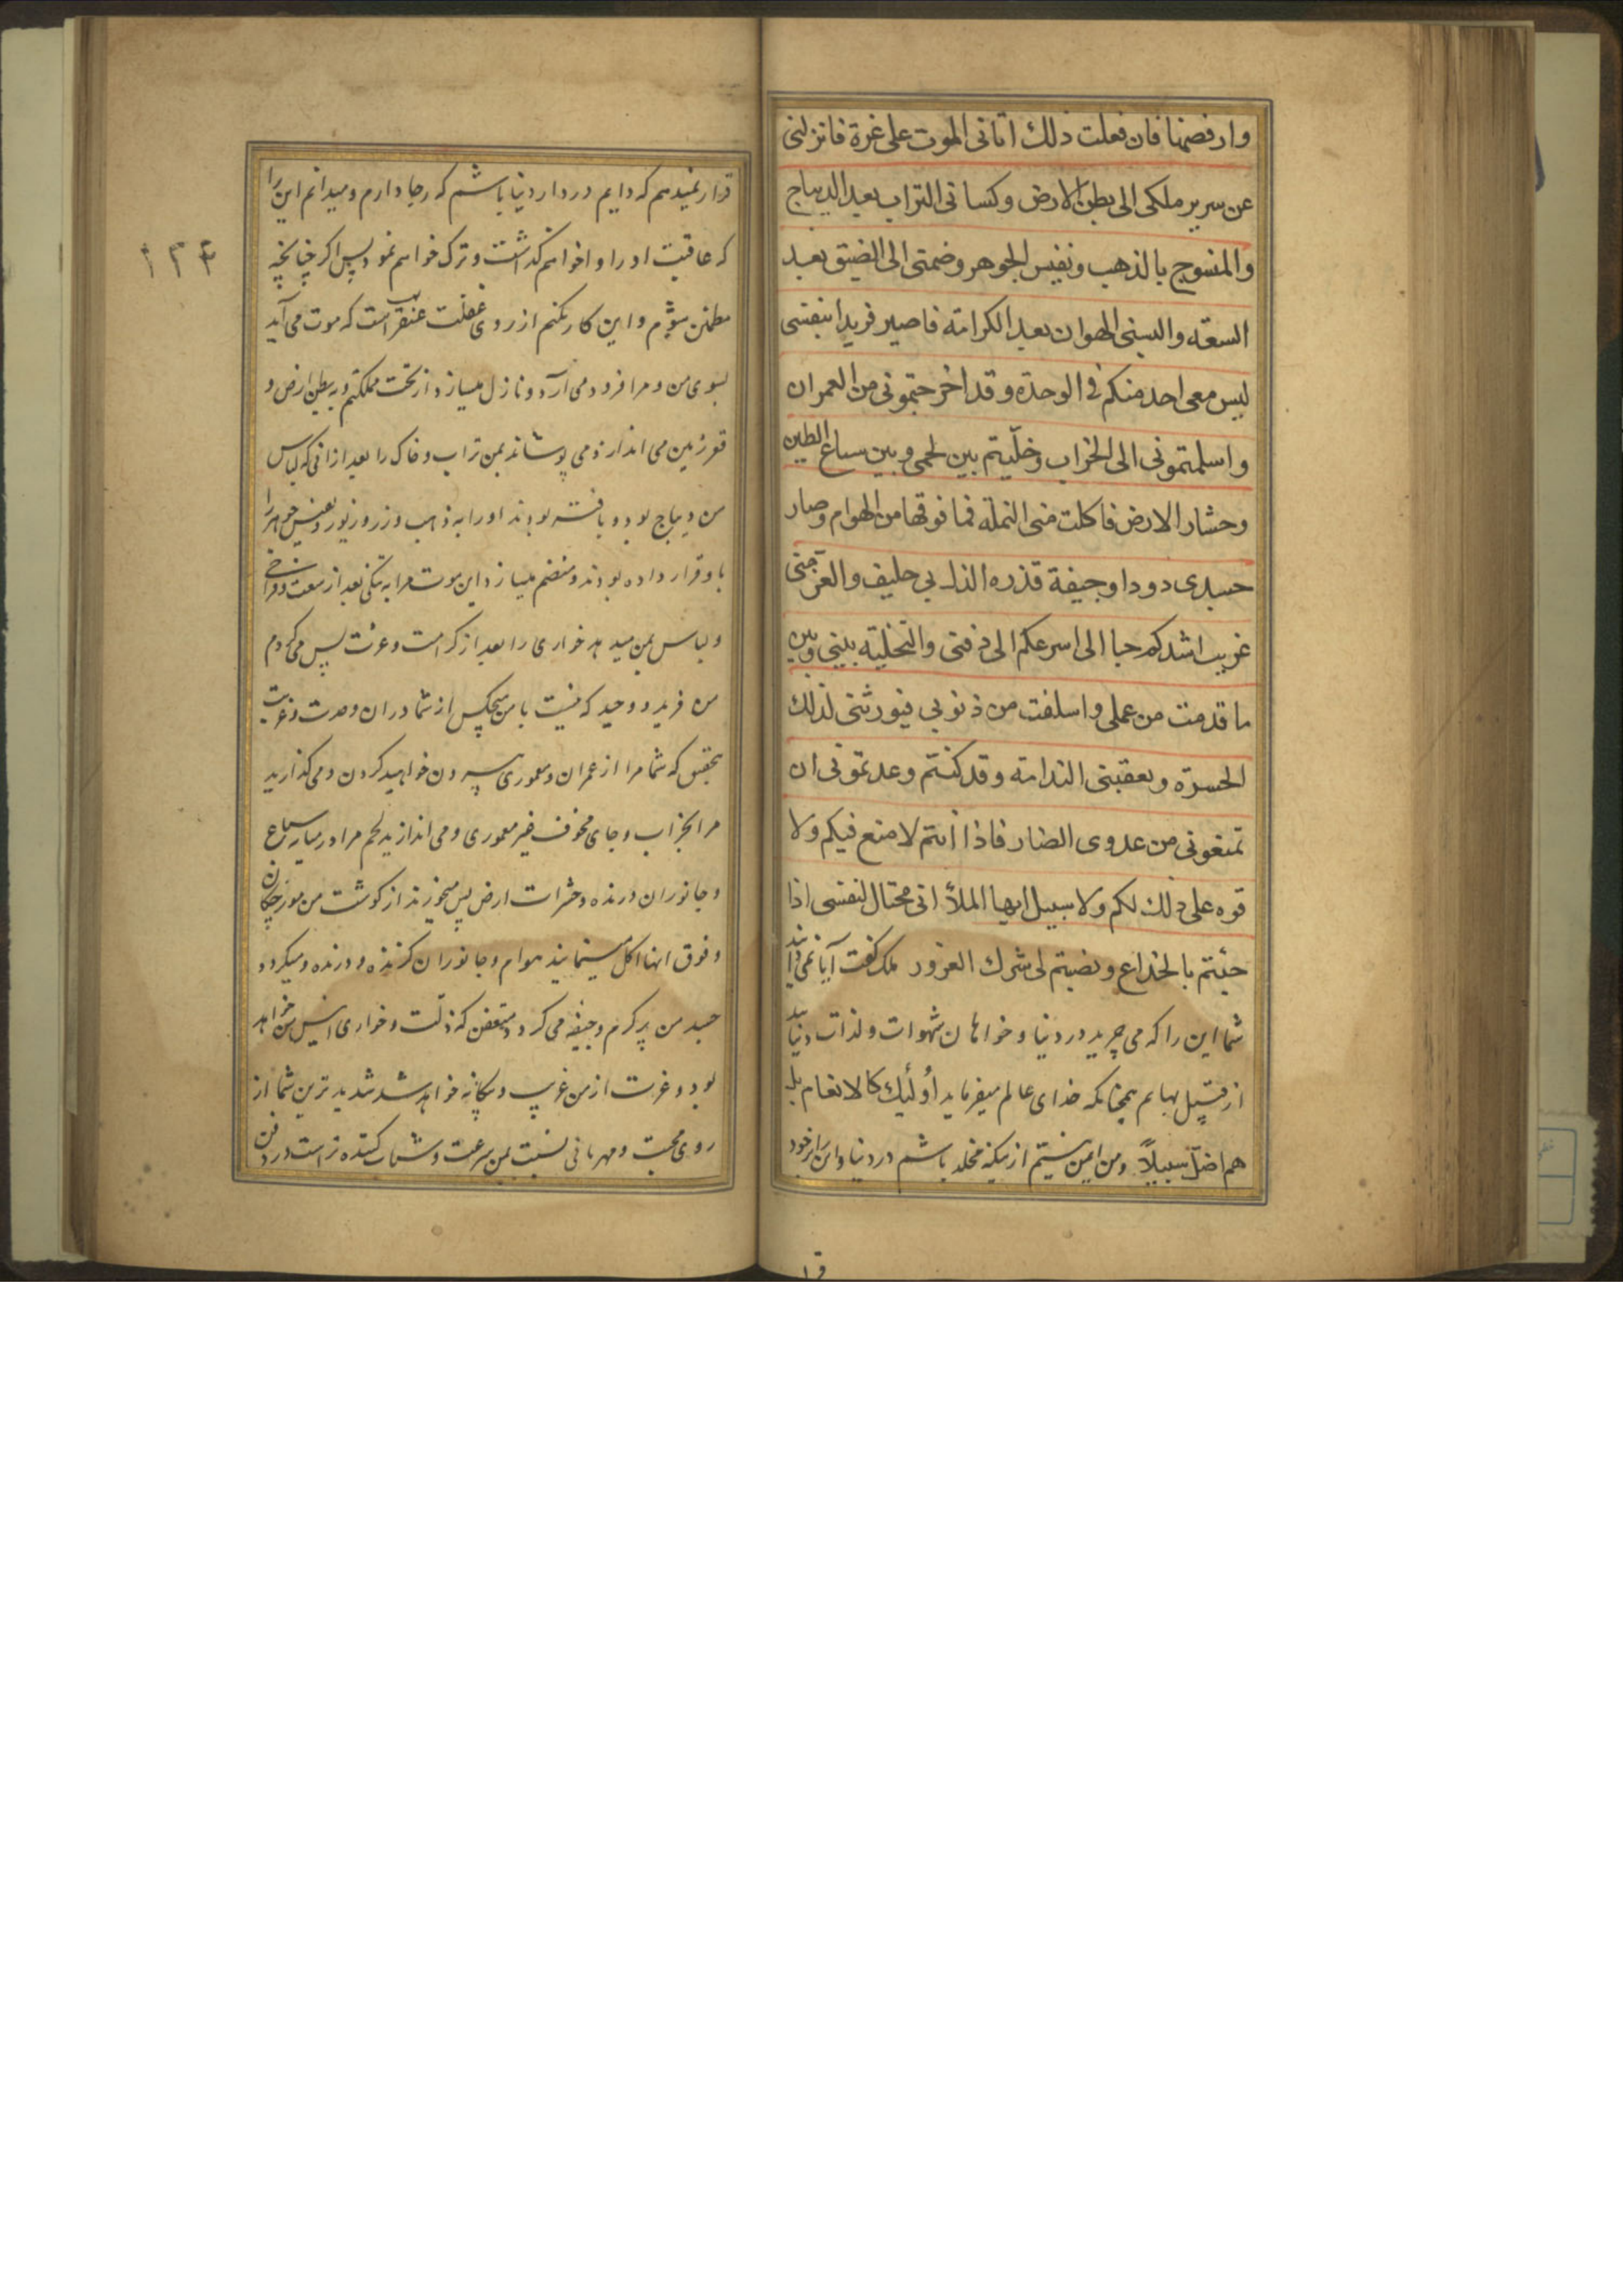 وارفضها فان فعلت ذلك اتانی الموت علی غرة فانزلنی
عن سریر ملکی الی بطن الارض وکسانی التراب بعد الدیباج
والمنسوج بالذهب ونفیس الجوهر وضمتی الی الضیق بعد
السعة والبسنی الهوان بعد الکرامة فاصیر فریدا بنفسی
لیس معی احد منکم فی الوحدة وقد اخرجتمونی من العمران
واسلمتمونی الی الخراب وخلّیتم بین لحمی وبین سباع الطین
وحشار الارض فاکلت منی النملة فما فوقها من الهوام وصار
جسدی دودا وجیفة قذره الذل بی حلیف والعزّ منی
غریب اشدکم حبا الی اسرعکم الی دفنی والتخلیة بینی وبین
ما قدمت من عملی واسلفت من ذنوبی فیورثنی لذلك
الحسرة ویعقبنی الندامة وقد کنتم وعدتمونی ان
تمنعونی من عدوی الضار فاذا انتم لا منع فیکم ولا
قوه علی ذلك لکم ولا سبیل ایها الملأ انی محتال لنفسی اذا
جئتم بالخداع ونصبتم لی شرك الغرور ملک گفت آیا نمی دانید
شما این را که می چرید در دنیا و خواهان شهوات ولذات دنیائید
از قبیل بهایم همچنانکه خدای عالم میفرماید أولٰئك کالانعام بل
هم اضلّ سبیلاً ومن ایمن نیستم از نیکه مخلد باشم در دنیا واین را بر خود
قرا
۱۳۴
قرار نمیدهم که دایم در دار دنیا باشم که رجا دارم ومیدانم این را
که عاقبت او را واخواهم گذاشت وترک خواهم نمود پس اگر چنانچه
مطمئن شوم واین کار بکنم از روی غفلت عنقریب است که موت می آید
بسوی من ومرا فرود می آرد ونازل میسازد از تخت مملکتم وبه بطن ارض و
قعر زمین می اندازد ومی پوشاند بمن تراب وخاک را بعد از انی که لباس
من دیباج بود وبافته بودند او را به ذهب وزر وزیور ونفیس جوهر را
با وقرار داده بودند ومنضم میسازد این موت مرا به تنگی بعد از سعت وفراخی
ولباس بمن میدهد خواری را بعد از کرامت وعزت پس می گردم
من فرید ووحید که نیست با من هیچکس از شما دران وحدت وغربت
بتحقیق که شما مرا از عمران ومعموری بیرون خواهید کردن ومی گذارید
مرا بخراب وجای مخوف غیر معموری ومی اندازید لحم مرا در میان سباع
وجانوران درنده وحشرات ارض پس میخورند از گوشت من مورچگان
وفوق انها اکل مینمایند هوام وجانوران گزنده ودرنده ومیگردد
جسد من پر کرم وجیفه می گردد متعفن که ذلت وخواری انیس من خواهد
بود وعزت از من غریب وبیگانه خواهد شد شدید ترین شما از
روی محبت ومهربانی نسبت بمن سرعت وشتاب کننده تر است در دفن